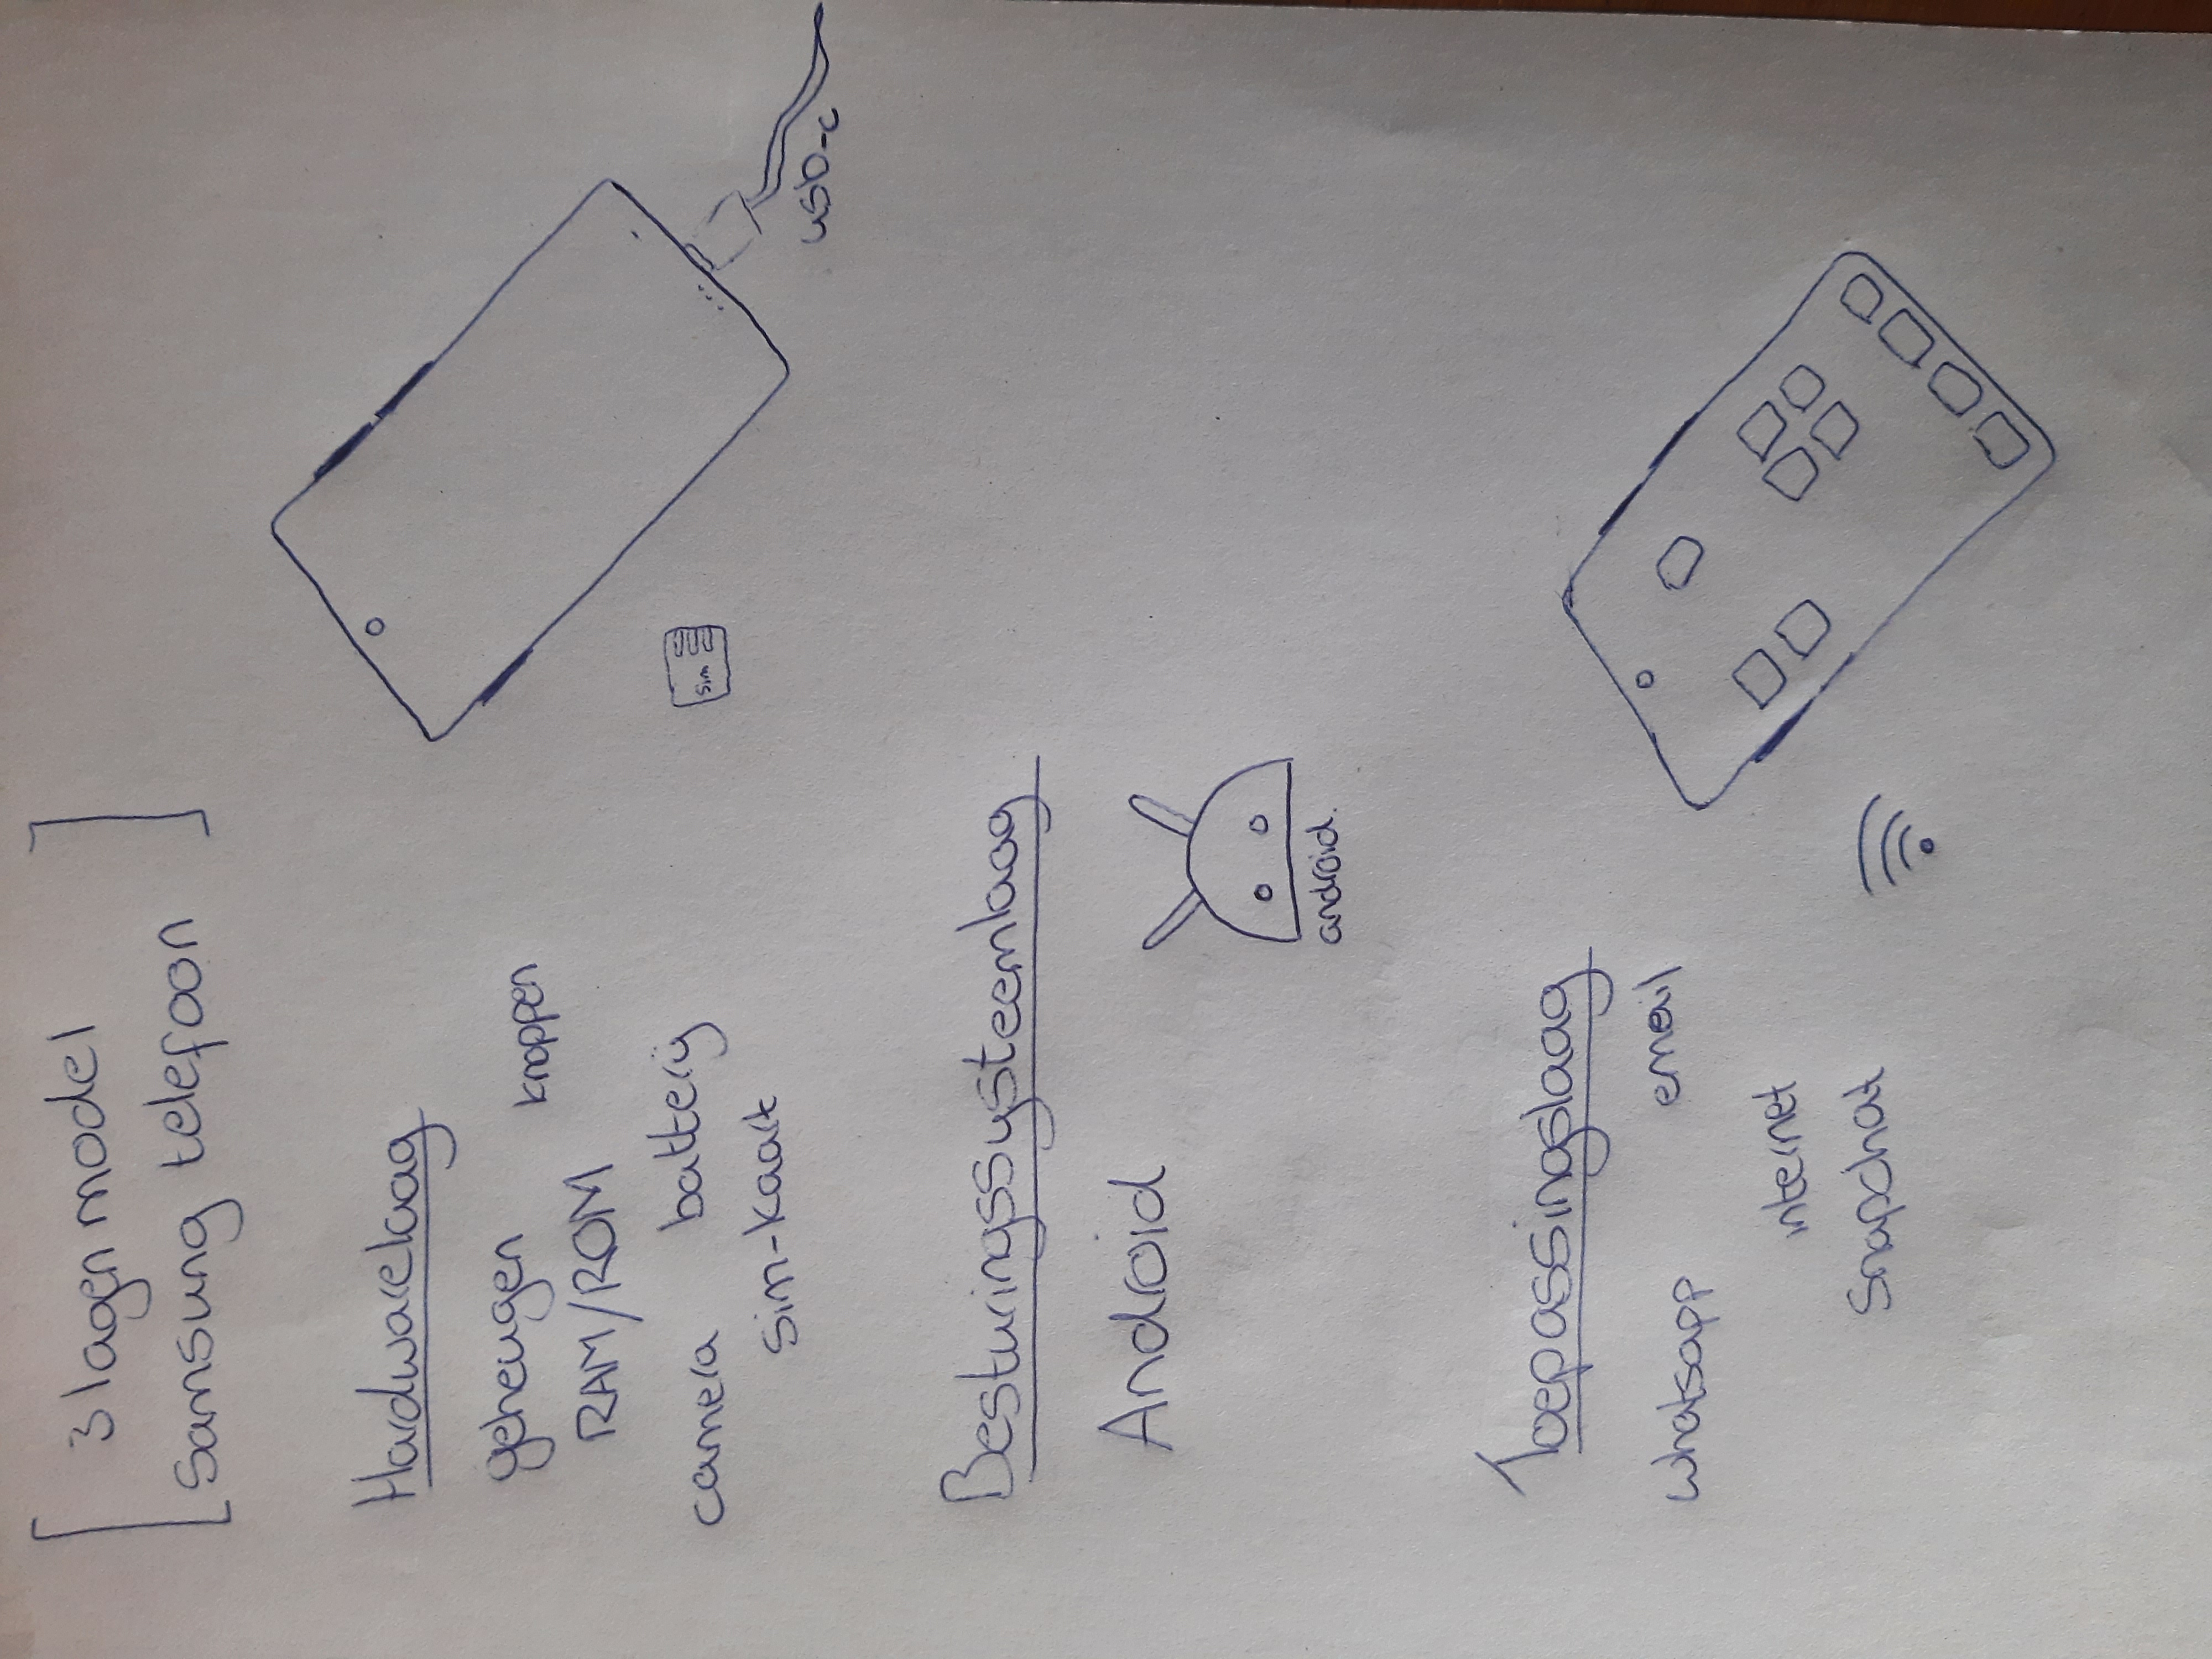 3 lagen model
Samsung telefoon
Hardwarelaag
geheugen
knoppen
RAM/ROM
camera
batterij
sim-kaart
Sim
usb-c
Besturingssysteemlaag
Android
android.
Toepassingslaag
whatsapp
email
internet
Snapchat